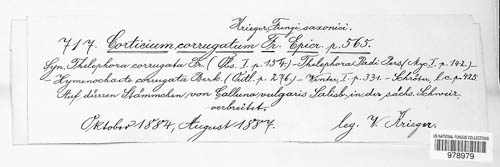 Krieger, Fungi saxonici.
717. Corticium corrugatum Fr. Epicr. p. 565.
Syn. Thelephora corrugata Fr. (Obs. I. p. 154) - Thelephora Padi Pers (Myc. I. p. 142) -
- Hymenochaete corrugata Berk. (Outl. p. 276) - Winter, I. p. 331. - Schröter, l. c. p. 425
Auf dürren Stämmchen von Calluna vulgaris Salisb. in der sächs. Schweiz
verbreitet.
Oktober 1884, August 1887. leg. W. Krieger.
US NATIONAL FUNGUS COLLECTIONS
978979